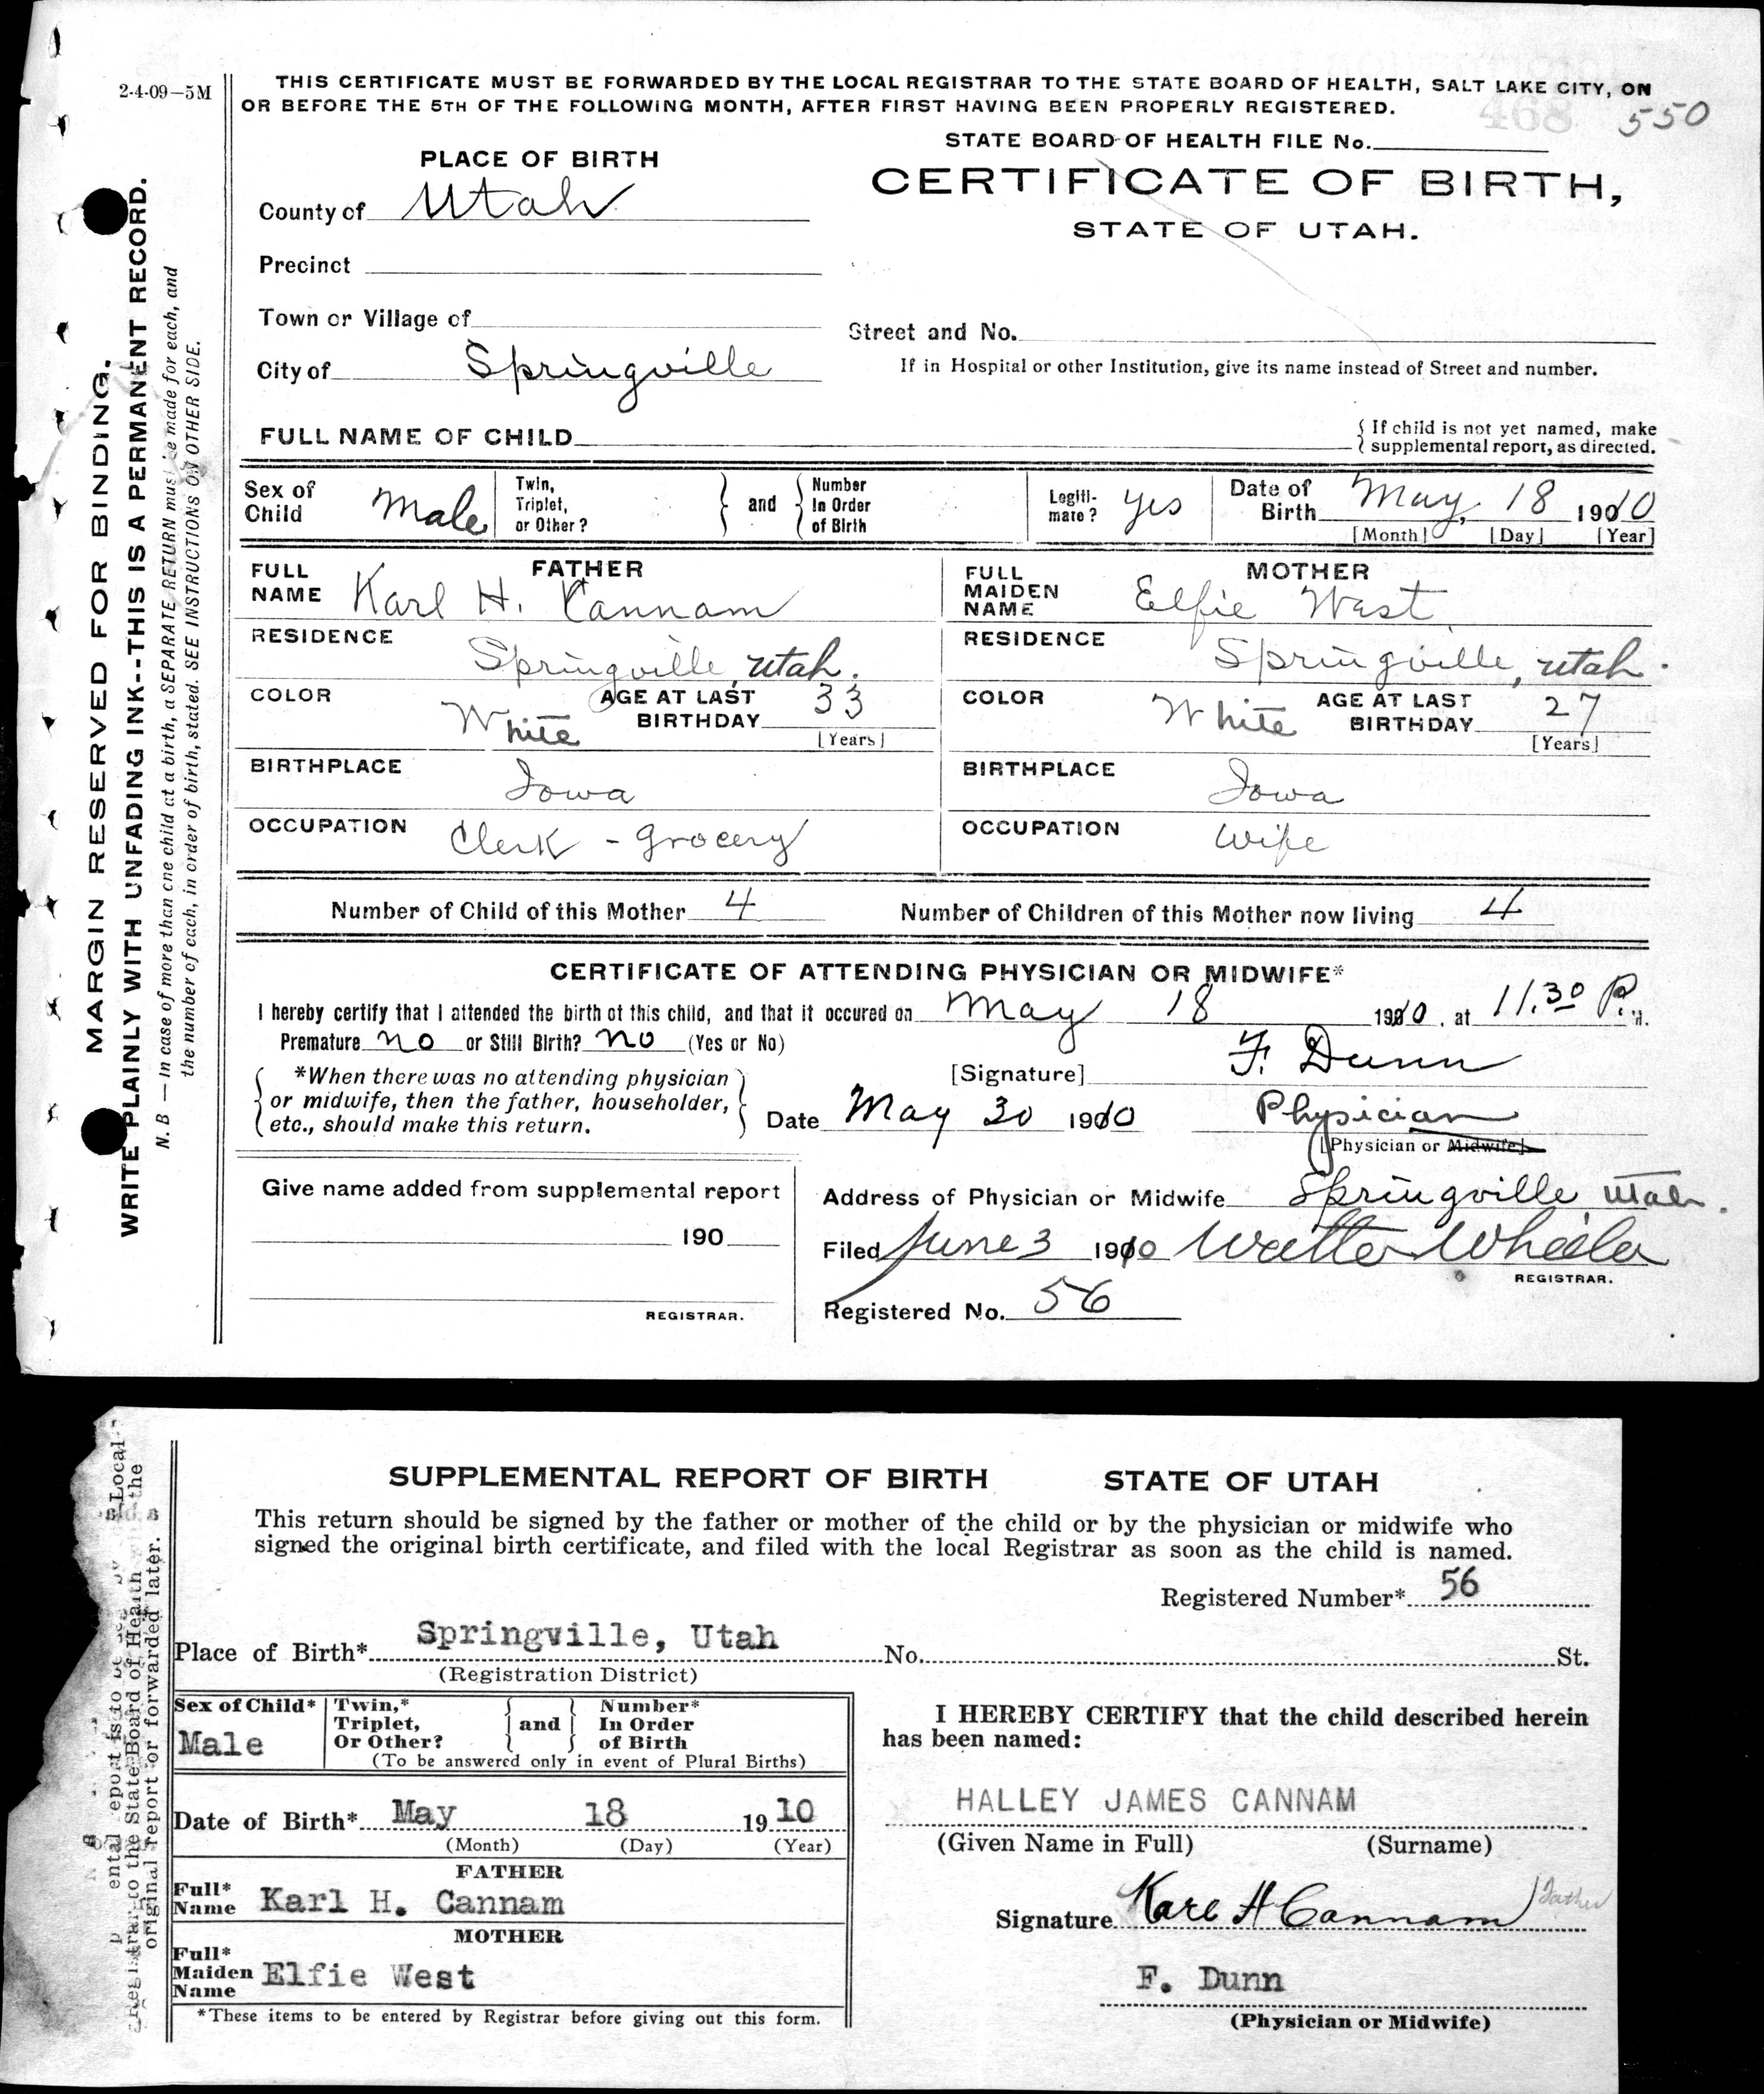 2-4-09—5M
THIS CERTIFICATE MUST BE FORWARDED BY THE LOCAL REGISTRAR TO THE STATE BOARD OF HEALTH, SALT LAKE CITY, ON
OR BEFORE THE 5TH OF THE FOLLOWING MONTH, AFTER FIRST HAVING BEEN PROPERLY REGISTERED.
468 550
STATE BOARD OF HEALTH FILE No.
PLACE OF BIRTH
CERTIFICATE OF BIRTH,
STATE OF UTAH.
County of Utah
Precinct
Town or Village of
Street and No.
City of Springville
If in Hospital or other Institution, give its name instead of Street and number.
FULL NAME OF CHILD
{ If child is not yet named, make
{ supplemental report, as directed.
MARGIN RESERVED FOR BINDING.
WRITE PLAINLY WITH UNFADING INK--THIS IS A PERMANENT RECORD.
N. B — In case of more than one child at a birth, a SEPARATE RETURN must be made for each, and
the number of each, in order of birth, stated. SEE INSTRUCTIONS ON OTHER SIDE.
Sex of Child Male
Twin, Triplet, or Other? } and { Number In Order of Birth
Legiti-mate? Yes
Date of Birth May, 18 1910
[Month] [Day] [Year]
FATHER
FULL NAME Karl H. Cannam
MOTHER
FULL MAIDEN NAME Elfie West
RESIDENCE Springville, Utah.
RESIDENCE Springville, Utah.
COLOR White AGE AT LAST BIRTHDAY 33 [Years]
COLOR White AGE AT LAST BIRTHDAY 27 [Years]
BIRTHPLACE Iowa
BIRTHPLACE Iowa
OCCUPATION Clerk - Grocery
OCCUPATION Wife
Number of Child of this Mother 4 Number of Children of this Mother now living 4
CERTIFICATE OF ATTENDING PHYSICIAN OR MIDWIFE*
I hereby certify that I attended the birth of this child, and that it occured on May 18 1910, at 11.30 P. M.
Premature no or Still Birth? no (Yes or No)
*When there was no attending physician
or midwife, then the father, householder,
etc., should make this return.
[Signature] F. Dunn
Date May 30 1910 Physician
[Physician or Midwife]
Give name added from supplemental report
190
REGISTRAR.
Address of Physician or Midwife Springville Utah.
Filed June 3 1910 Walter Wheeler
REGISTRAR.
Registered No. 56
SUPPLEMENTAL REPORT OF BIRTH STATE OF UTAH
This return should be signed by the father or mother of the child or by the physician or midwife who
signed the original birth certificate, and filed with the local Registrar as soon as the child is named.
Registered Number* 56
Place of Birth* Springville, Utah No. St.
(Registration District)
Sex of Child* Male
Twin,* Triplet, Or Other? } and { Number* In Order of Birth
(To be answered only in event of Plural Births)
Date of Birth* May 18 1910
(Month) (Day) (Year)
FATHER
Full* Name Karl H. Cannam
MOTHER
Full* Maiden Name Elfie West
*These items to be entered by Registrar before giving out this form.
I HEREBY CERTIFY that the child described herein
has been named:
HALLEY JAMES CANNAM
(Given Name in Full) (Surname)
Signature Karl H Cannam Father
F. Dunn
(Physician or Midwife)
Local
to the State Board of Health the
original report or forwarded later.